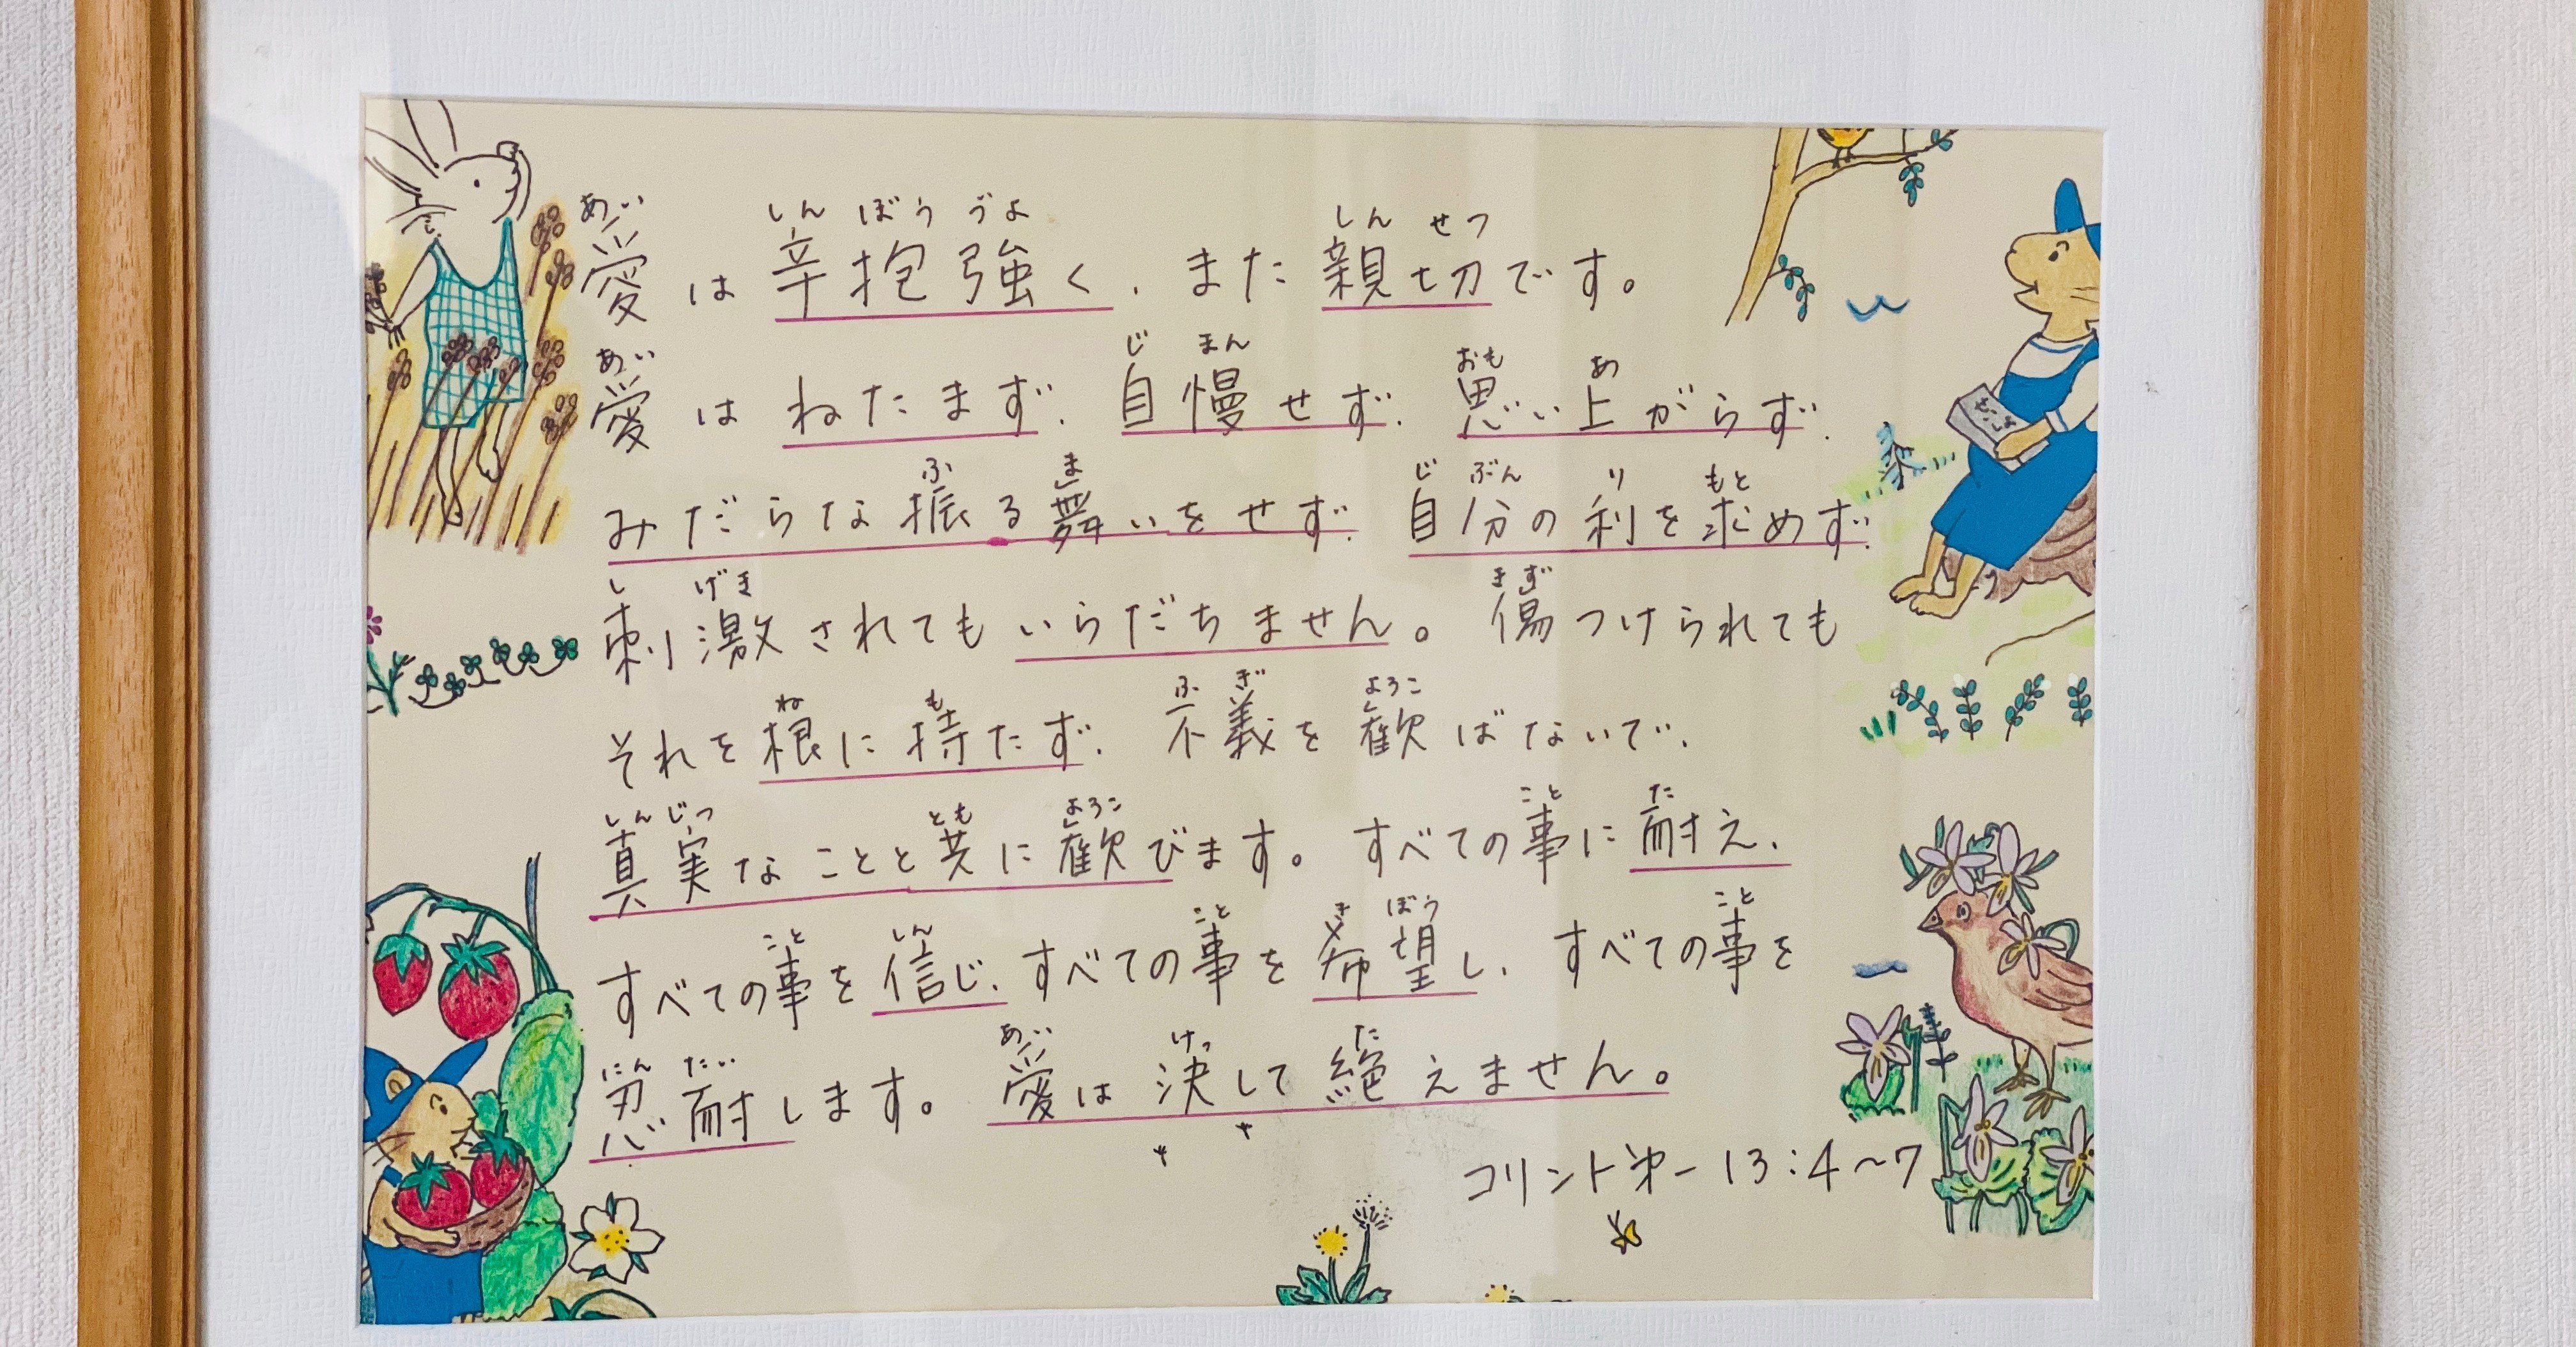 愛は辛抱強く、また親切です。
愛はねたまず、自慢せず、思い上がらず、
みだらな振る舞いをせず、自分の利を求めず、
刺激されてもいらだちません。傷つけられても
それを根に持たず、不義を歓ばないで、
真実なことと共に歓びます。すべての事に耐え、
すべての事を信じ、すべての事を希望し、すべての事を
忍耐します。愛は決して絶えません。
コリント第一13:4〜7
せいしょ